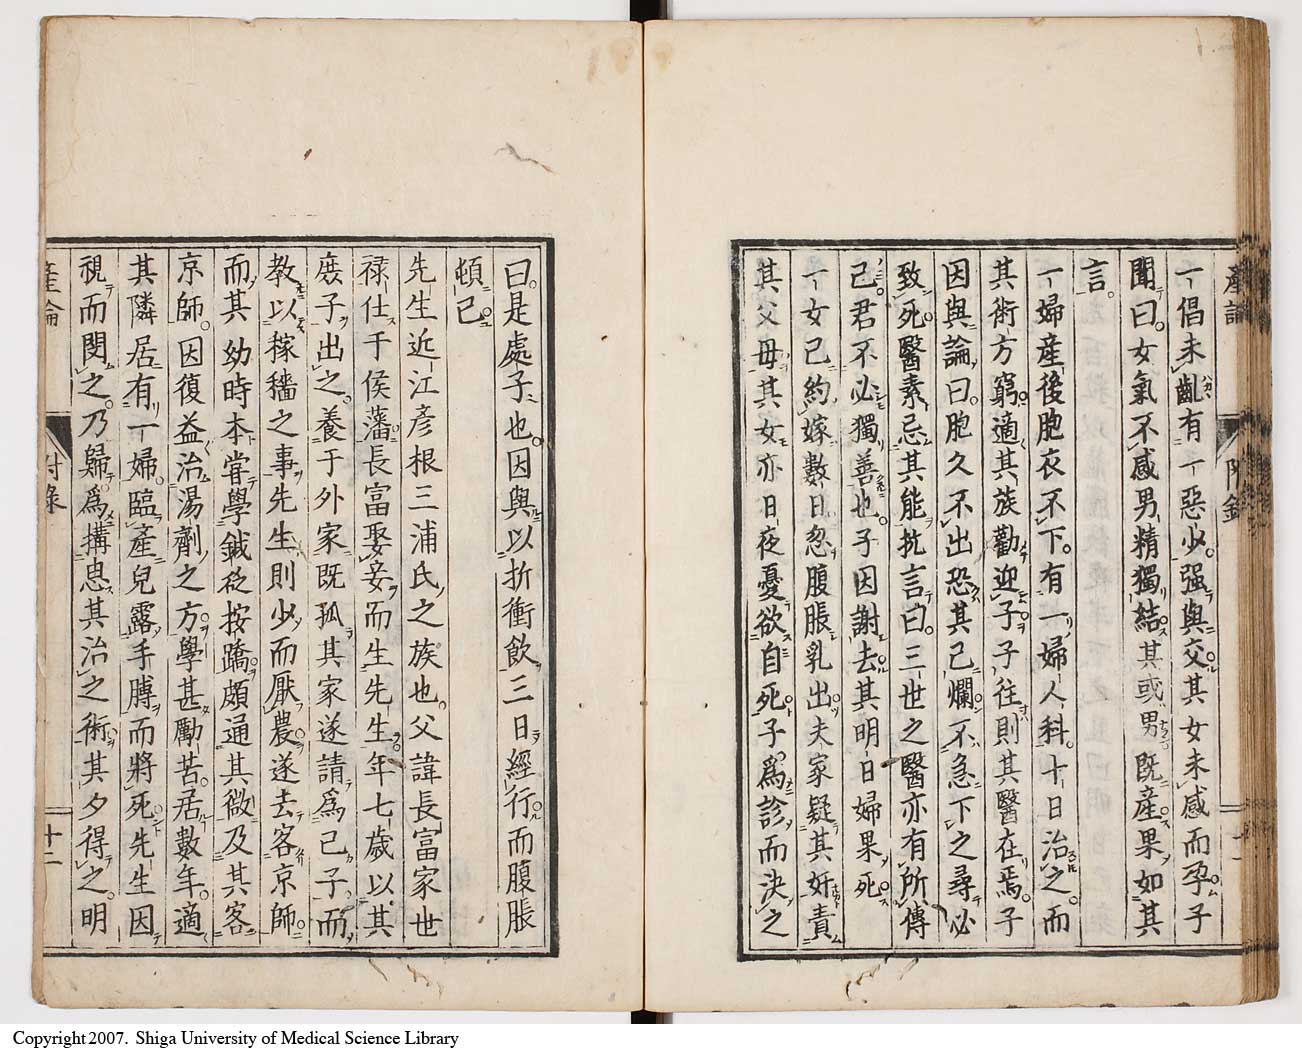 産論
附錄
十一
一倡未齓有一惡少强與交其女未感而孕子
聞曰女氣不感男精獨結其或男既產果如其
言
一婦產後胞衣不下有一婦人科十日治之而
其術方窮適其族勸迎子子往則其醫在焉子
因與論曰胞久不出恐其已爛不急下之尋必
致死醫素忌其能抗言曰三世之醫亦有所傳
已君不必獨善也子因謝去其明日婦果死
一女已約嫁數日忽腹脹乳出夫家疑其奸責
其父毋其女亦日夜憂欲自死子爲診而決之
曰是處子也因與以折衝飲三日經行而腹脹
頓已
先生近江彥根三浦氏之族也父諱長富家世
祿仕于侯藩長富娶妾而生先生年七歲以其
庻子出之養于外家既孤其家遂請爲己子而
教以稼穡之事先生則少而厭農遂去客京師
而其幼時本甞學鍼砭按蹻頗通其微及其客
京師因復益治湯劑之方學甚勵苦居數年適
其隣居有一婦臨產兒露手膊而將死先生因
視而閔之乃歸爲搆思其治之術其夕得之明
産論
附錄
十二
Copyright 2007. Shiga University of Medical Science Library